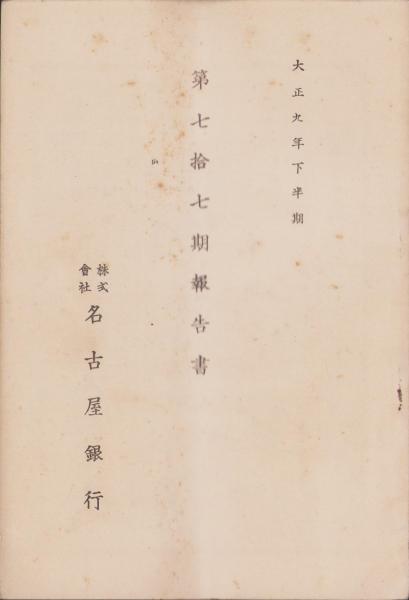 大正九年下半期
第七拾七期報告書
株式會社
名古屋銀行